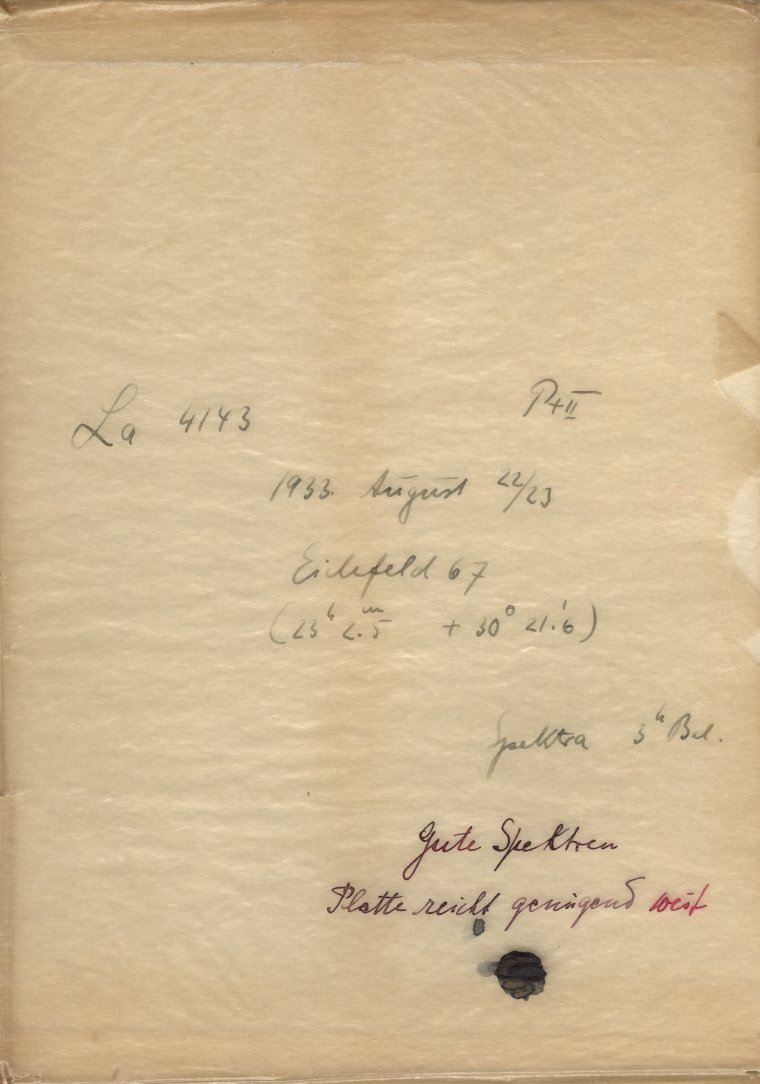 La 4143
1933. August 22/23
Eichfeld 67
(23ʰ 2.ᵐ5 + 30° 21.'6)
Spektra 3ʰ Bel.
Gute Spektren
Platte reicht genügend weit